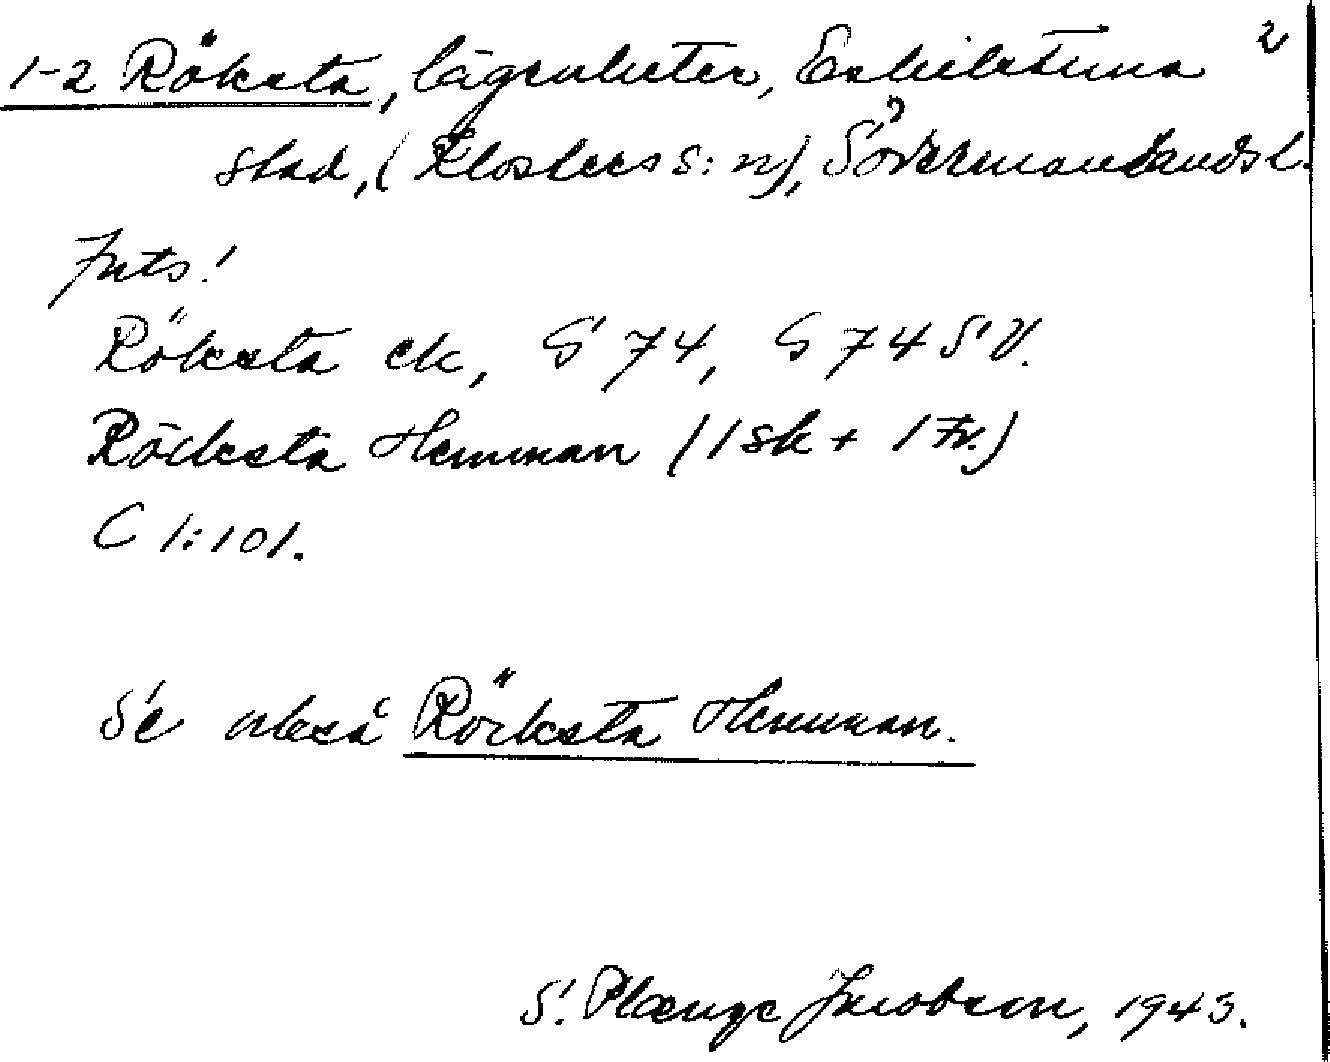 1-2 Röksta, lägenheter, Eskilstuna 2
stad, (Klosters s:n), Södermanlands l.
Jnts!
Röksta ek, S 74, G 74 SV.
Röcksta Hemman (1 sk + 1 Fr.)
C 1:101.
Se också Röcksta Hemman.
S. Plænge Jacobson, 1943.